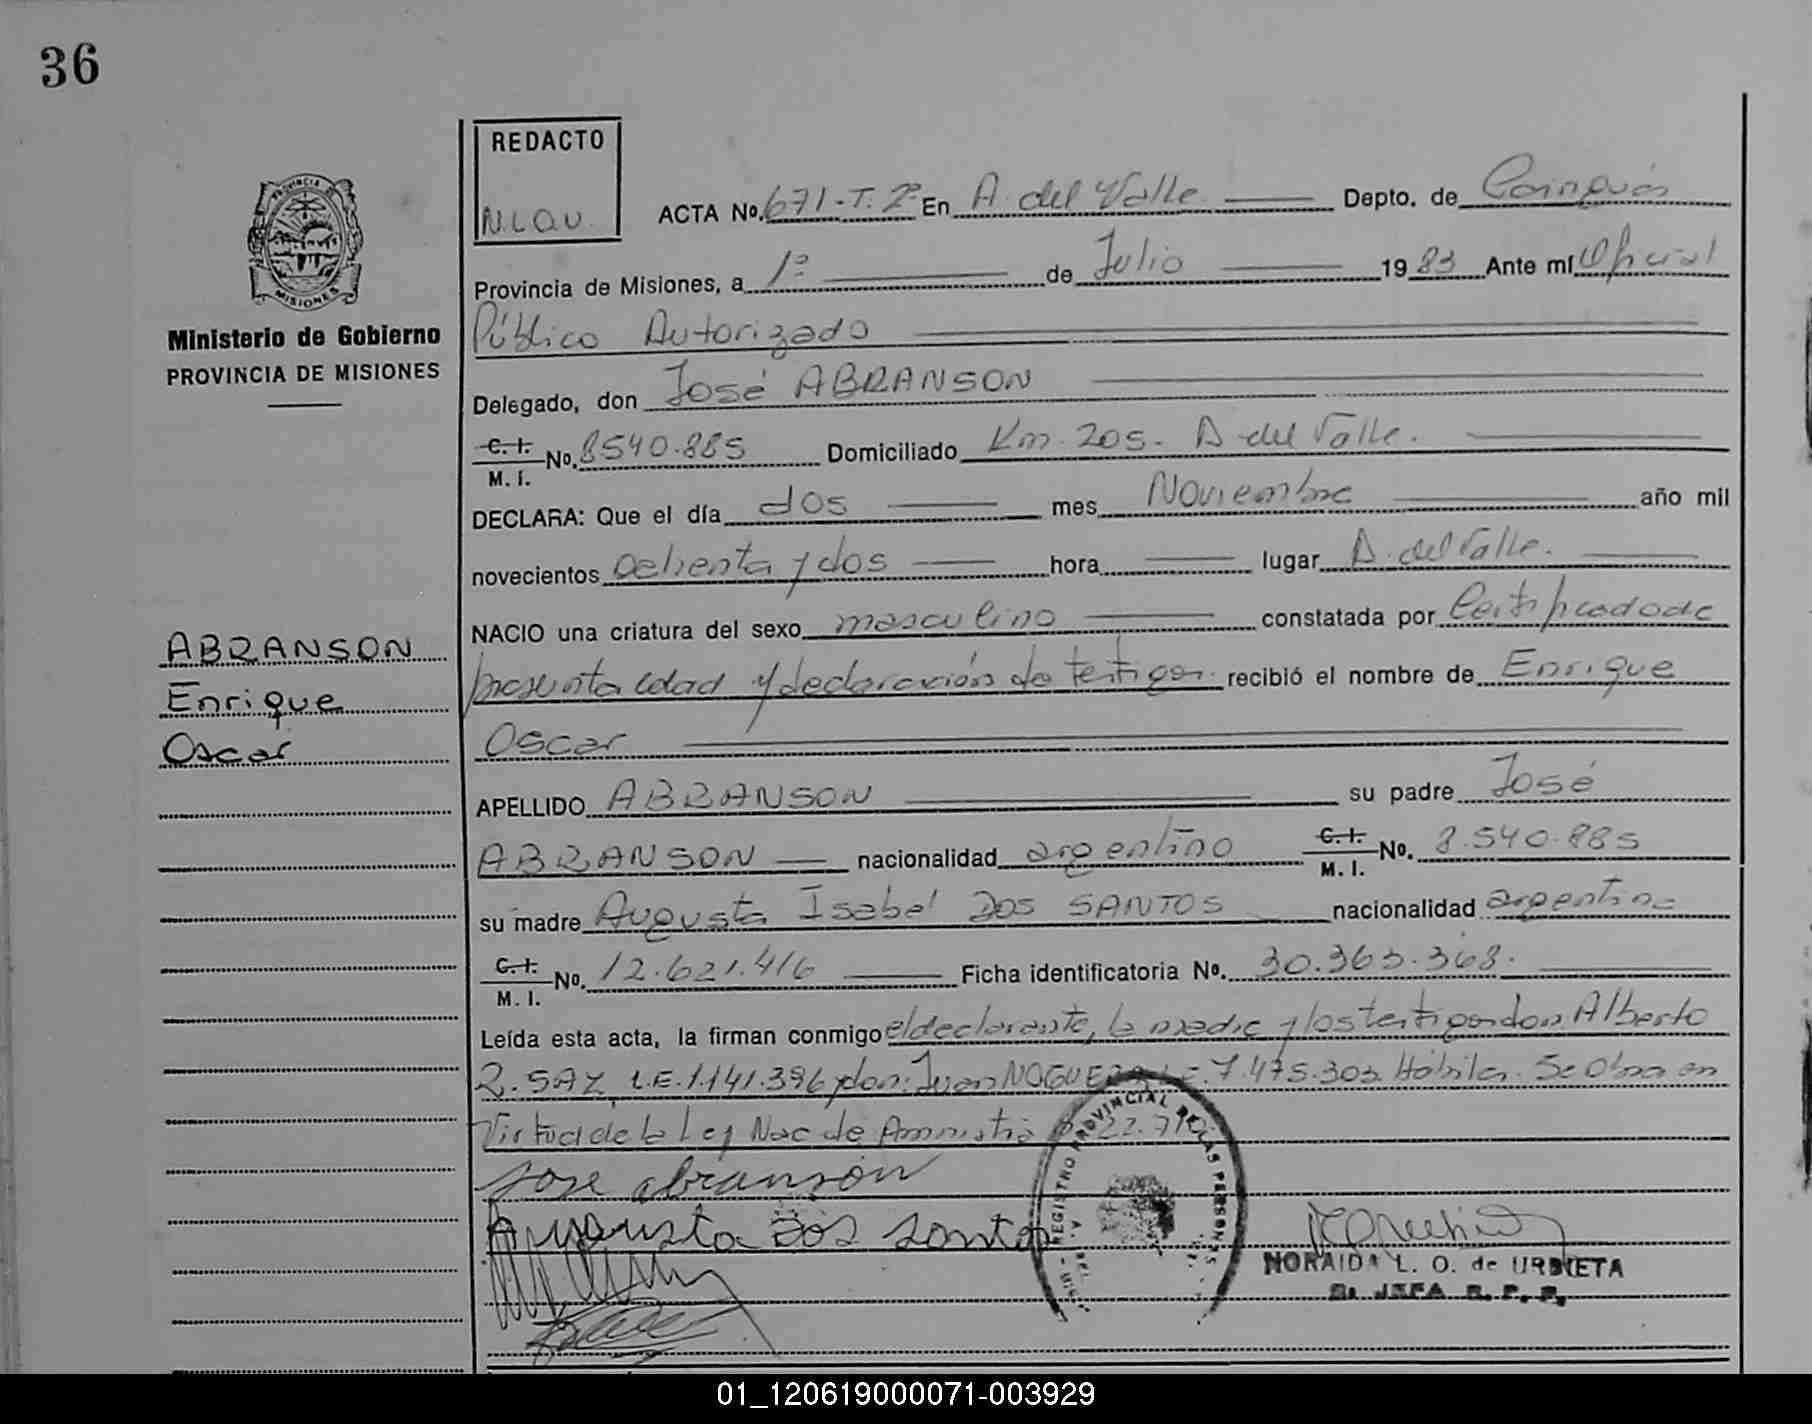 36
REDACTO
N.L.O.U.
ACTA No. 671-T. 2º En A. del Valle Depto. de Cainguás
Provincia de Misiones, a 1º de Julio 1983 Ante mí Oficial
Público Autorizado
Delegado, don José ABRANSON
C. I. M. I. No. 8540.885 Domiciliado Km. 205. A. del Valle.
DECLARA: Que el día dos mes Noviembre año mil
novecientos ochenta y dos hora lugar A. del Valle.
NACIO una criatura del sexo masculino constatada por Certificado de
presunta edad y declaración de testigos. recibió el nombre de Enrique
Oscar
APELLIDO ABRANSON su padre José
ABRANSON nacionalidad argentino C. I. M. I. No. 8.540.885
su madre Augusta Isabel DOS SANTOS nacionalidad argentina
C. I. M. I. No. 12.621.416 Ficha identificatoria No. 30.363.368.
Leída esta acta, la firman conmigo el declarante, la madre y los testigos don Alberto
R. SAZ L.E. 1.141.396 y don: Juan NOGUERA L.E. 7.475.303. Hábiles. Se Obra en
Virtud de la Ley Nac de Amnistia 22.710
jose abranson
Augusta dos santos
REGISTRO PROVINCIAL DE LAS PERSONAS
NORAIDA L. O. de URBIETA
JEFA R. P. P.
PROVINCIA DE
MISIONES
Ministerio de Gobierno
PROVINCIA DE MISIONES
ABRANSON
Enrique
Oscar
01_120619000071-003929